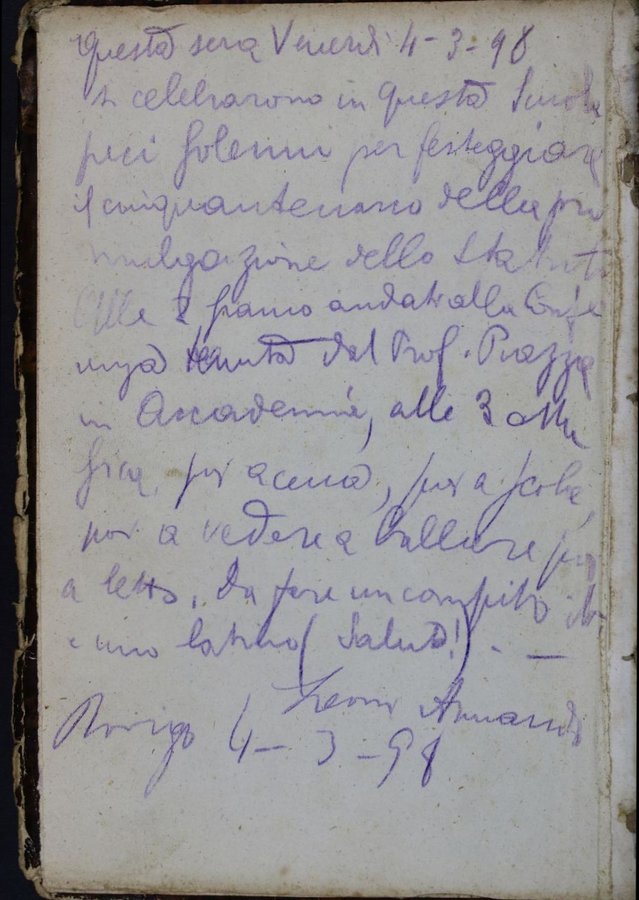 Questa sera Venerdì 4-3-98
si celebrarono in questa Scuola
feci solenni per festeggiare
il cinquantenario della pro
mulgazione dello Statuto
Alle 2 siamo andati alla Confe
renza tenuta dal Prof. Piazza
in Accademia, alle 3 alla
fica, poi a cena, poi a scola,
poi a vedere a ballare poi
a letto. Da fare un compito
e uno latino (Salute!). —
Leoni Armando
Rovigo 4-3-98